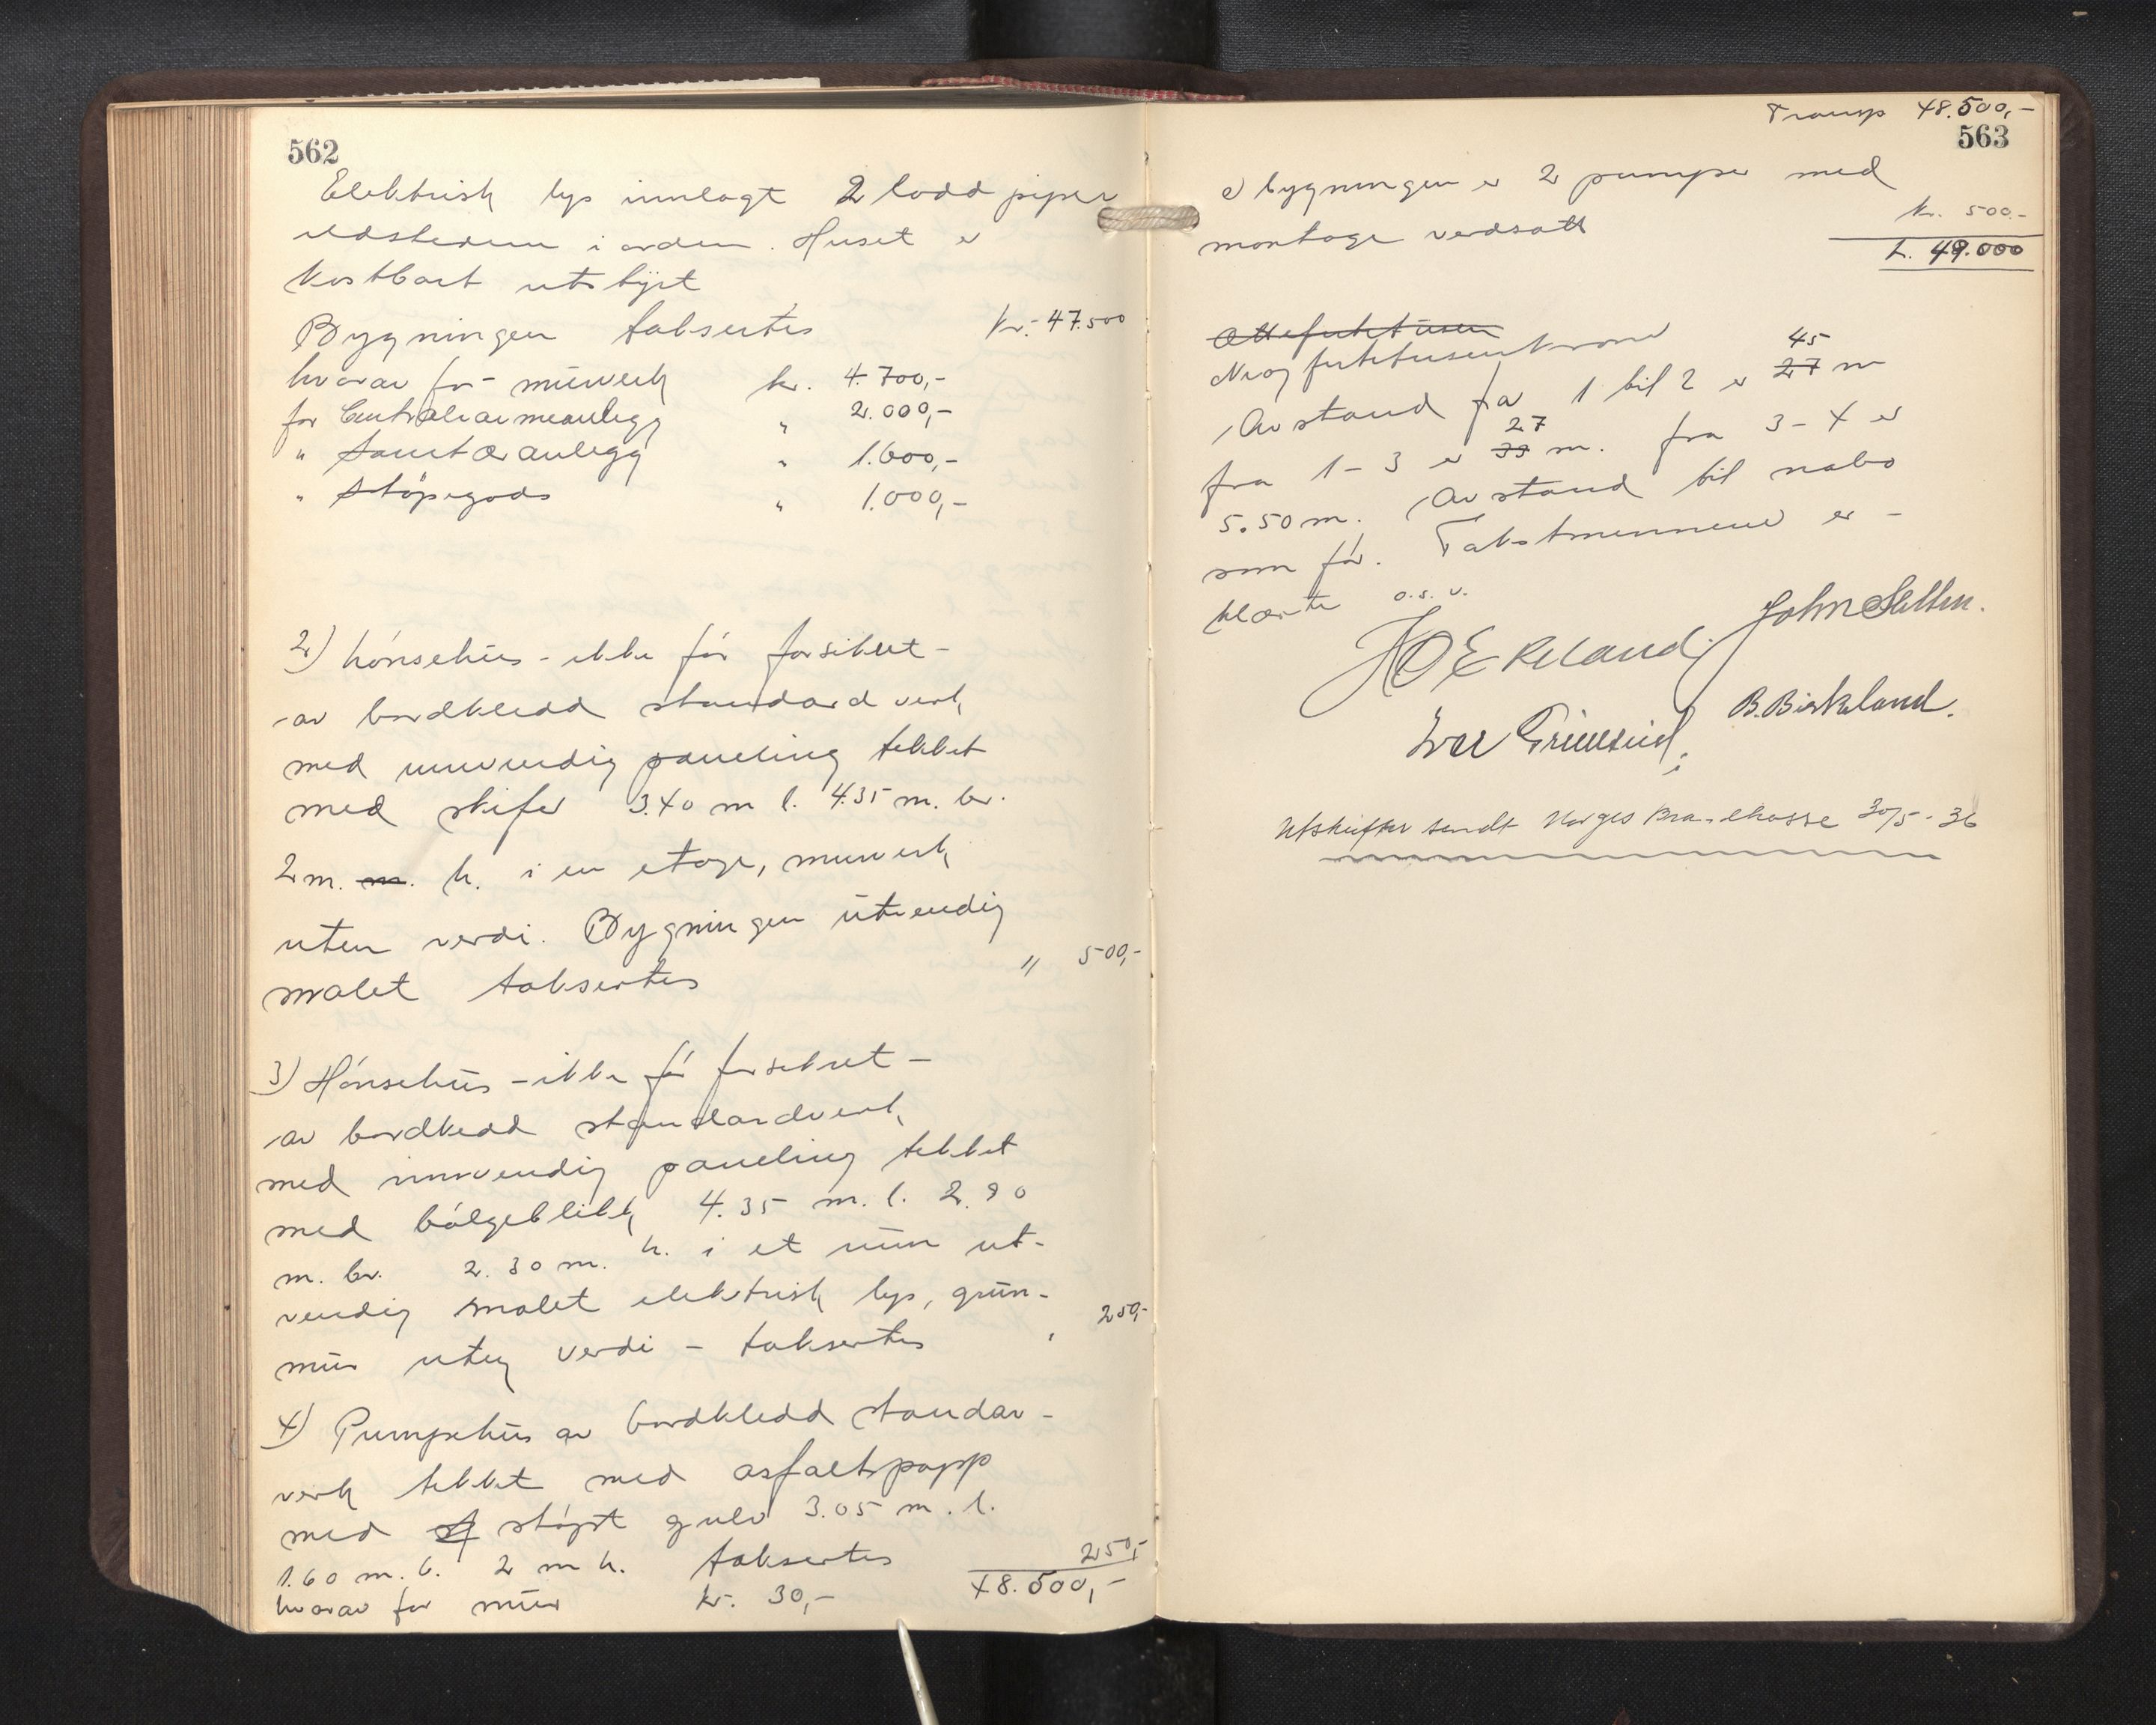 562
Elektrisk lys innlagt 2 lodd piper
ildstedene i orden. Huset er
kostbart utstyrt
Bygningen takseres kr. 47.500
hvorav for murverk kr. 4.700,-
for Centralvarmeanlegg " 2.000,-
" Sanitæranlegg " 1.600,-
" støpegods " 1.000,-
2) hønsehus - ikke før forsikret -
av bordkledd standard verk
med innvendig paneling tekket
med skifer 3.40 m l. 4.35 m. br.
2 m. m. h. i en etage, murverk
uten verdi. Bygningen utvendig
malet taksertes " 500,-
3) Hønsehus - ikke før forsikret -
av bordkledd standardverk
med innvendig paneling tekket
med bølgeblikk 4.35 m. l. 2.90
m. br. 2.30 m. h. i et rum ut-
vendig malet elektrisk lys, grun-
mur uten verdi - taksertes " 250,-
4) Pumpehus av bordkledd standar-
verk tekket med asfaltpapp
med st støpt gulv 3.05 m. l.
1.60 m. b. 2 m h. taksertes 250,-
hvorav for mur kr. 30,- 48.500,-
Transp 48.500,-
563
I bygningen er 2 pumper med
montage verdsatt kr. 500.-
k. 49.000
Ottefirtitusen
Niogfirtitusenkroner
Avstand fra 1 til 2 er 27 45 m
fra 1 - 3 er 33 27 m. fra 3 - 4 er
5.50 m. Avstand til nabo
som før. Takstmennene er -
klærte o.s.v.
H O Ekeland John Sletten.
B. Birkeland.
Ivar
Utskrifter sendt Norges Brandkasse 30/5 - 36